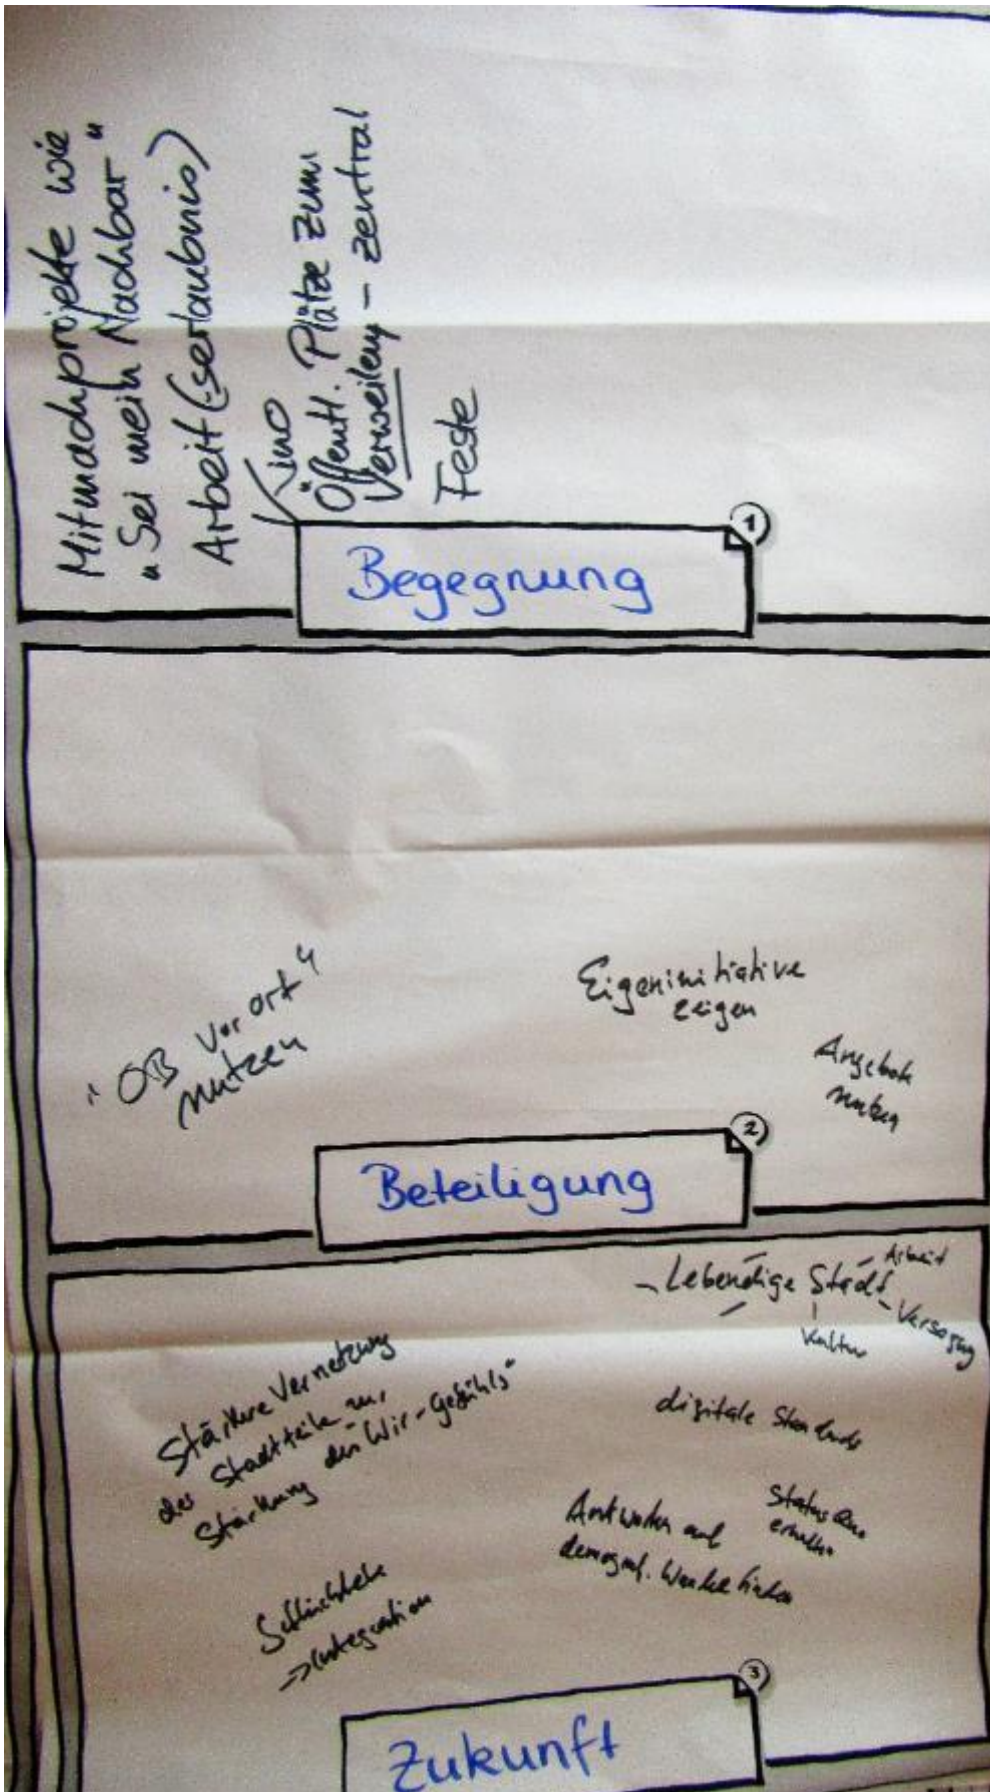 Mitmachprojekte wie
„Sei mein Nachbar"
Arbeit(serlaubnis)
Kino
Öffentl. Plätze zum
Verweilen – zentral
Feste
Begegnung
1
„OB vor ort"
nutzen
Eigeninitiative
zeigen
Angebote
nutzen
Beteiligung
2
– Lebendige Stadt
Arbeit
Versorgung
Kultur
Stärkere Vernetzung
der Stadtteile zur
Stärkung des „Wir-Gefühls"
digitale Standards
Status Quo
erhalten
Antworten auf
demograf. Wandel finden
→ Integration
Zukunft
3